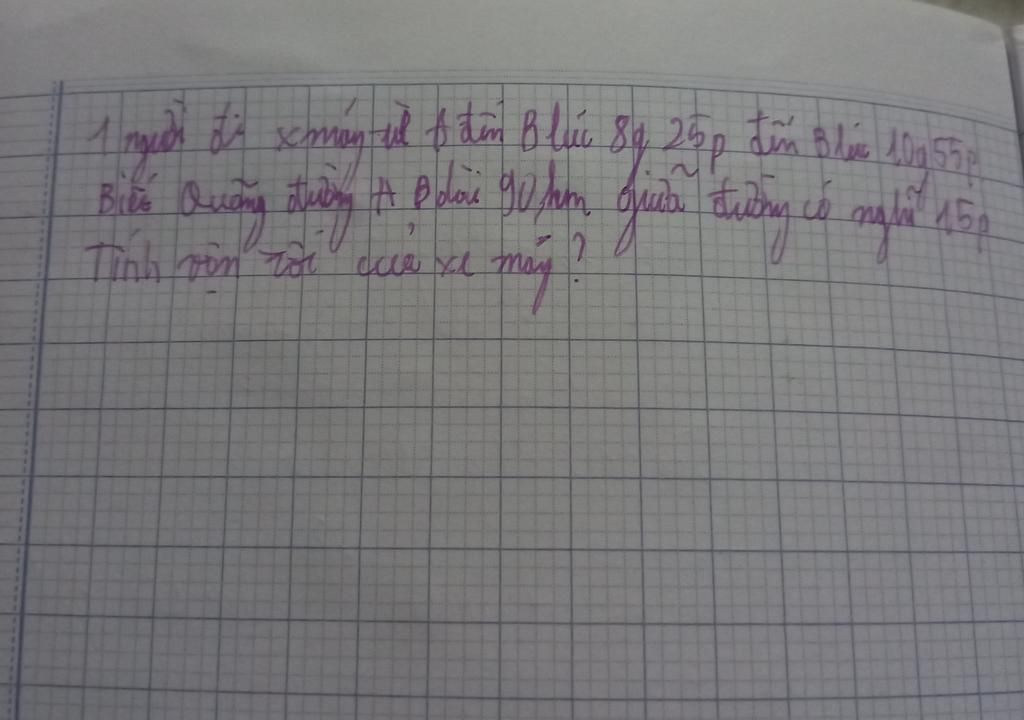 1 người đi xmáy từ A đến B lúc 8g 25p đến B lúc 10g55p
Biết Quãng đường A B dài 90km giữa đường có nghỉ 15p
Tính vận tốc của xe máy?